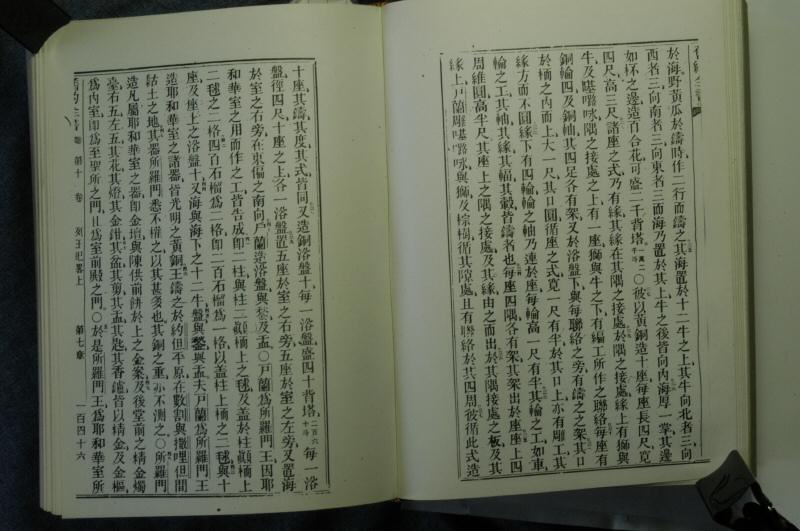 於海野黃瓜於鑄時作二行而鑄之其海置於十二牛之上其牛向北者三向
西者三向南者三向東者三而海乃置於其上牛之後皆向內海厚一掌其邊
如杯之邊造百合花可盛二千背塔○彼以黃銅造十座每座長四尺寬
四尺高三尺諸座之式乃有緣其緣在其隅之接處於隅之接處緣上有獅與
牛及𠼻𡀔𠲖隅之接處之上有一座獅與牛之下有編工所作之聯絡每座有
銅輪四及銅軸其四足各有架又於浴盤下與每聯絡之旁有鑄之之架其口
於橋之內而上大一尺其口圓循座之式寬一尺有半於其口上亦有雕工其
緣方而不圓緣下有四輪輪之軸乃連於座每輪高一尺有半其輪之工如車
輪之工其軸其緣其輻其轂皆鑄者也每座四隅各有架其架出於座座上四
周維圓高半尺其座上之隅之接處及其緣由之而出於其隅接處之板及其
緣上戶蘭雕基路𠲖與獅及棕樹循其隙處且有聯絡於其四周彼循此式造
十座其鑄其度其式皆同又造銅浴盤十每一浴盤盛四十背塔每一浴
盤徑四尺十座之上各一浴盤置五座於室之右旁五座於室之左旁又置海
於室之右旁在東偏之南向戶蘭造浴盤與鍫及盂○戶蘭為所羅門王因耶
和華室之用而作之工皆告成卽二柱與柱二顛桶上之毬及蓋於柱顛桶上
二毬之二格四百石榴為二格卽二百石榴為一格以蓋柱上桶之二毬與十
座及座上之浴盤十又海與海下之十二牛盤與鍫與盂夫戶蘭為所羅門王
造耶和華室之諸器皆光明之黃銅王鑄之於約但平原在數割與撒哩但間
粘土之地其器所羅門悉不權之以其甚多也其銅之重亦不測之○所羅門
造凡屬耶和華室之器卽金壇與陳供前餅於上之金案及後堂前之精金燭
臺右五左五其花其燈其金鉗其盆其剪其盂其匙其香爐皆以精金及金樞
為內室卽為至聖所之門且為室前殿之門○於是所羅門王為耶和華室所
第十卷 列王紀畧上 第七章 一百四十六